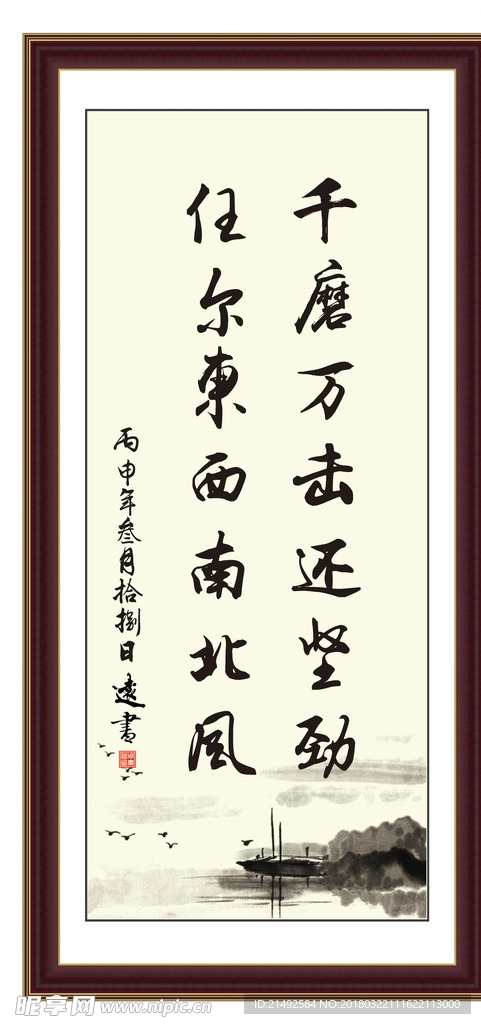 千磨万击还坚劲
任尔東西南北风
丙申年叁月拾捌日 远書
昵享网 www.nipic.cn
ID:21492584 NO:20180322111622113000